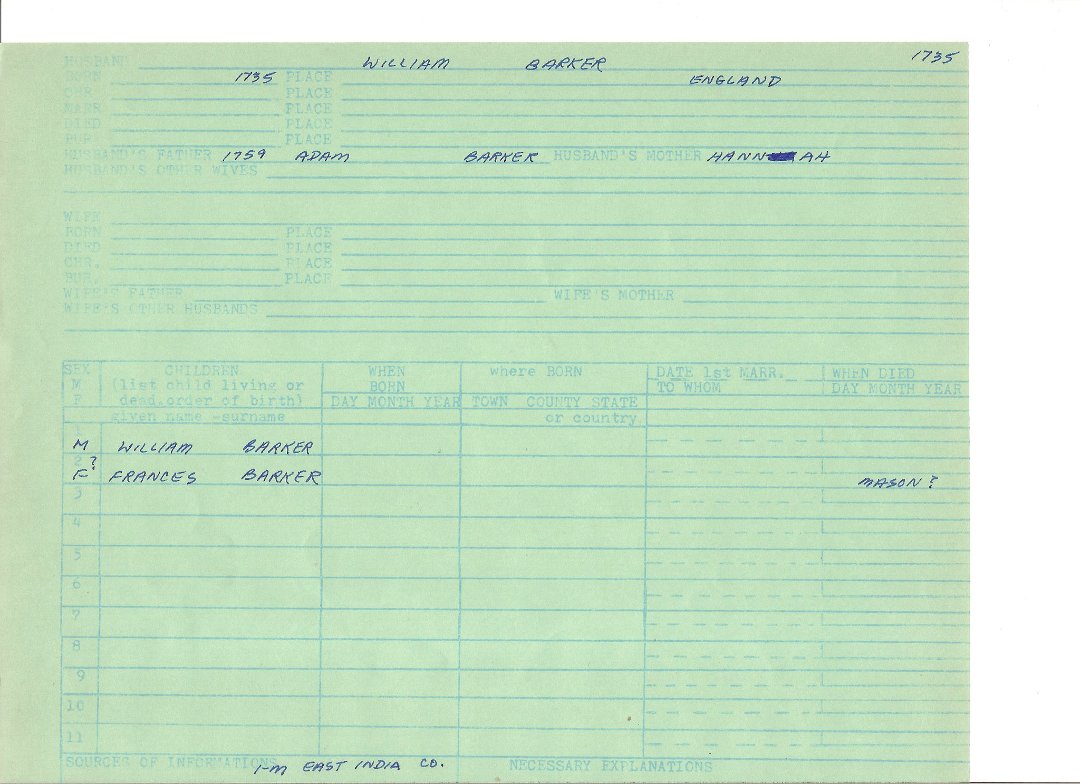 1735
HUSBAND WILLIAM BARKER
BORN 1735 PLACE ENGLAND
CHR. PLACE
MARR PLACE
DIED PLACE
BUR. PLACE
HUSBAND'S FATHER 1759 ADAM BARKER HUSBAND'S MOTHER HANN AH
HUSBAND'S OTHER WIVES
WIFE
BORN PLACE
DIED PLACE
CHR. PLACE
BUR. PLACE
WIFE'S FATHER WIFE'S MOTHER
WIFE'S OTHER HUSBANDS
SEX CHILDREN WHEN where BORN DATE 1st MARR. WHEN DIED
M (list child living or BORN TO WHOM DAY MONTH YEAR
F dead.order of birth) DAY MONTH YEAR TOWN COUNTY STATE
given name -surname or country
1
M WILLIAM BARKER
2 ?
F FRANCES BARKER MASON?
3
4
5
6
7
8
9
10
11
SOURCES OF INFORMATION 1-M EAST INDIA CO. NECESSARY EXPLANATIONS